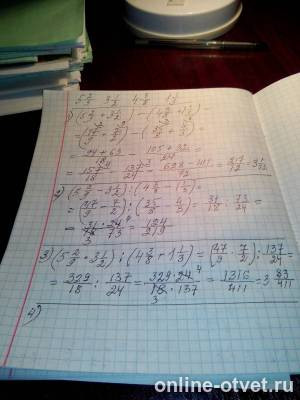 5 2/9   3 1/2   4 3/8   1 1/3
1) (5 2/9 + 3 1/2) - (4 3/8 + 1 1/3) =
= (47/9 + 7/2) - (35/8 + 4/3) =
= 94+63/18 - 105+32/24 =
2) (5 2/9 - 3 1/2) : (4 3/8 - 1 1/3) =
= (47/9 - 7/2) : (35/8 - 4/3) = 31/18 : 73/24 =
= 31/18 · 24/73 = 124/219
3) (5 2/9 · 3 1/2) : (4 3/8 + 1 1/3) = (47/9 · 7/2) : 137/24 =
= 329/18 : 137/24 = 329·24/18·137 = 1316/411 = 3 83/411
4)
online-otvet.ru